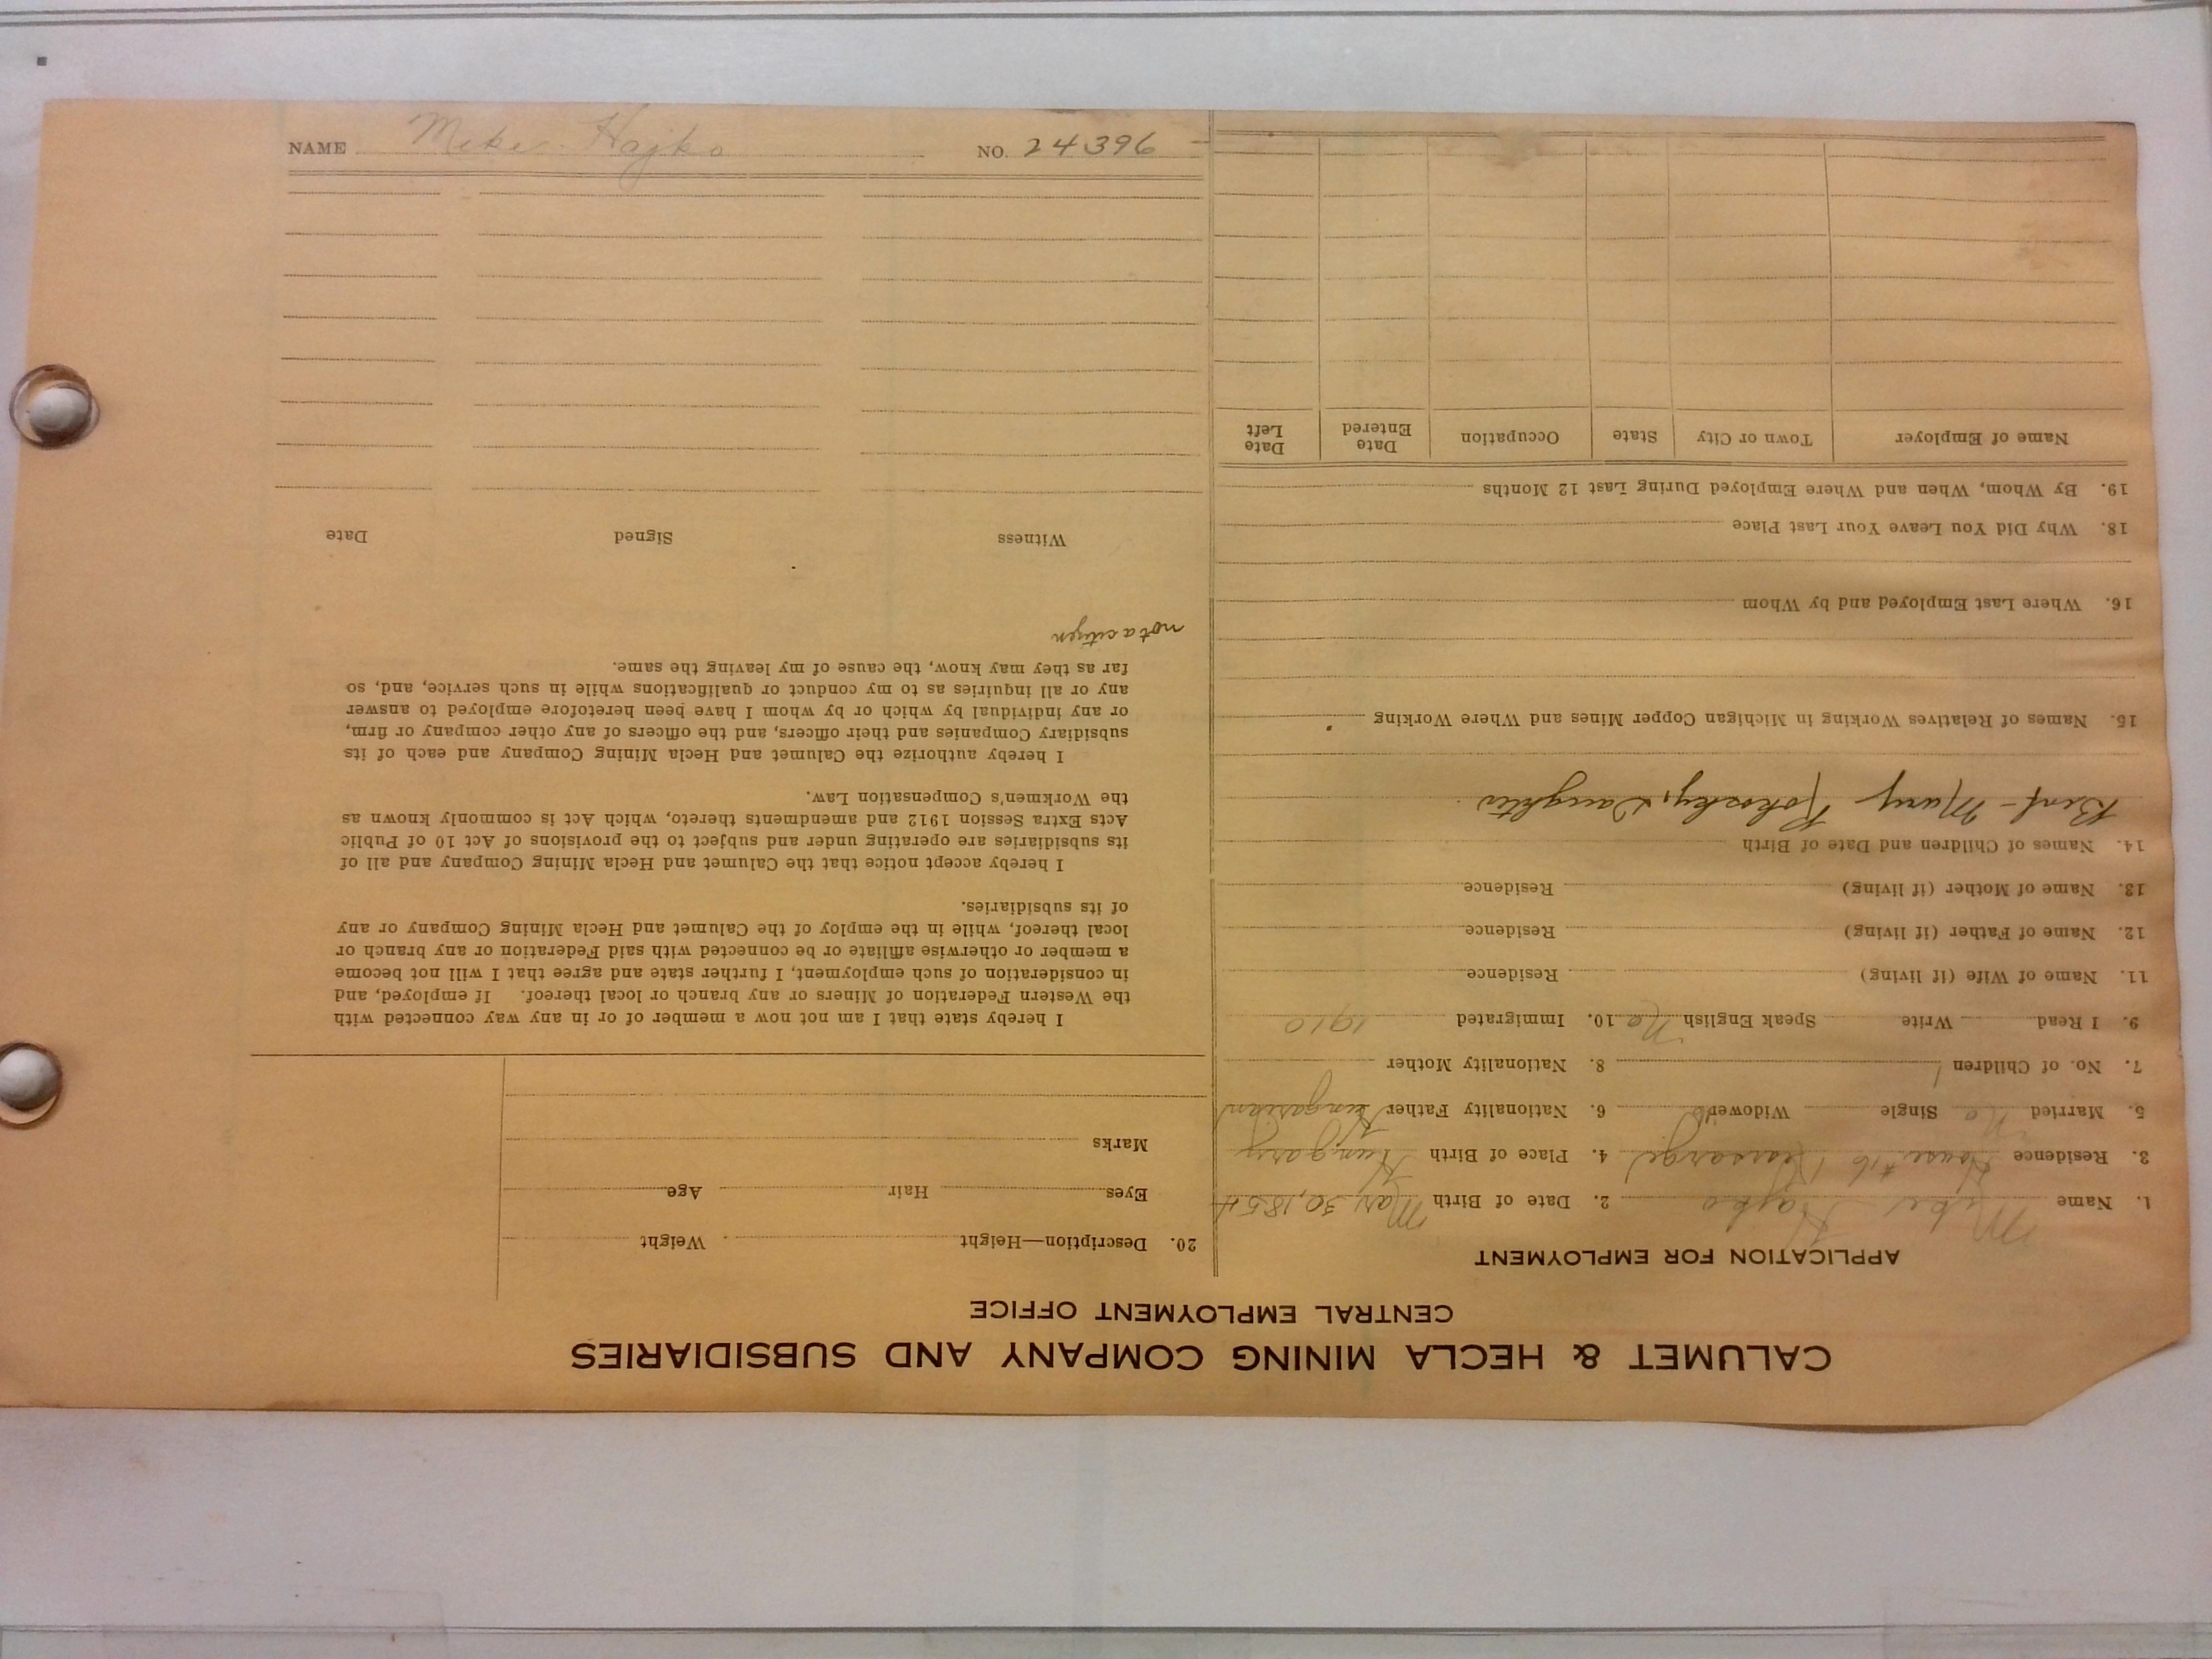 NAME Mike Hajko NO. 24396
CALUMET & HECLA MINING COMPANY AND SUBSIDIARIES
CENTRAL EMPLOYMENT OFFICE
APPLICATION FOR EMPLOYMENT
1. Name Mike Hajko 2. Date of Birth Mar 30, 1854
3. Residence House #16 Kearsarge 4. Place of Birth Hungary
5. Married No Single Widower 6. Nationality Father Hungarian
7. No. of Children 1 8. Nationality Mother
9. I Read Write Speak English No 10. Immigrated 1910
11. Name of Wife (if living) Residence
12. Name of Father (if living) Residence
13. Name of Mother (if living) Residence
14. Names of Children and Date of Birth
Benf - Mary Rokosky, Daughter
15. Names of Relatives Working in Michigan Copper Mines and Where Working
16. Where Last Employed and by Whom
18. Why Did You Leave Your Last Place
19. By Whom, When and Where Employed During Last 12 Months
Name of Employer Town or City State Occupation Date Entered Date Left
20. Description—Height Weight
Eyes Hair Age
Marks
I hereby state that I am not now a member of or in any way connected with
the Western Federation of Miners or any branch or local thereof. If employed, and
in consideration of such employment, I further state and agree that I will not become
a member or otherwise affiliate or be connected with said Federation or any branch or
local thereof, while in the employ of the Calumet and Hecla Mining Company or any
of its subsidiaries.
I hereby accept notice that the Calumet and Hecla Mining Company and all of
its subsidiaries are operating under and subject to the provisions of Act 10 of Public
Acts Extra Session 1912 and amendments thereto, which Act is commonly known as
the Workmen's Compensation Law.
I hereby authorize the Calumet and Hecla Mining Company and each of its
subsidiary Companies and their officers, and the officers of any other company or firm,
or any individual by which or by whom I have been heretofore employed to answer
any or all inquiries as to my conduct or qualifications while in such service, and, so
far as they may know, the cause of my leaving the same.
not a citizen
Witness Signed Date